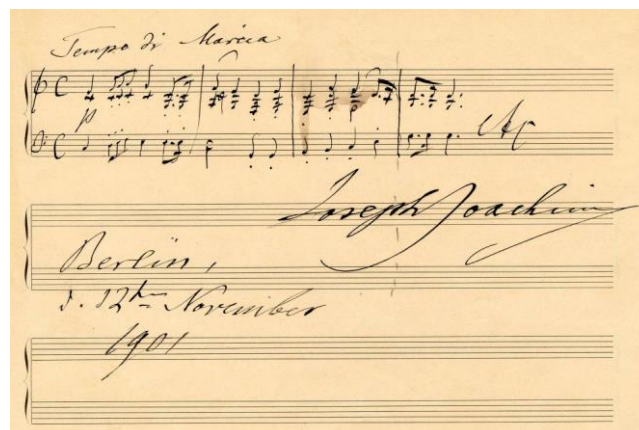 Tempo di Marcia
p
etc
Joseph Joachim
Berlin,
d. 12ten November
1901